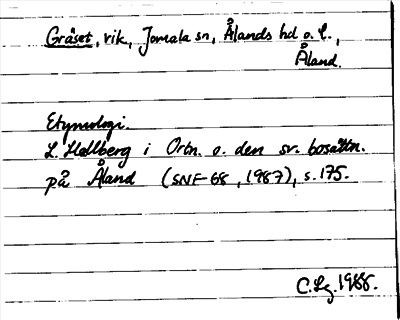 Gråset, vik, Jomala sn, Ålands hd o. l.,
Åland.
Etymologi.
L. Hellberg i Ortn. o. den sv. bosättn.
på Åland (SNF-68, 1987), s. 175.
C. Lg. 1988.